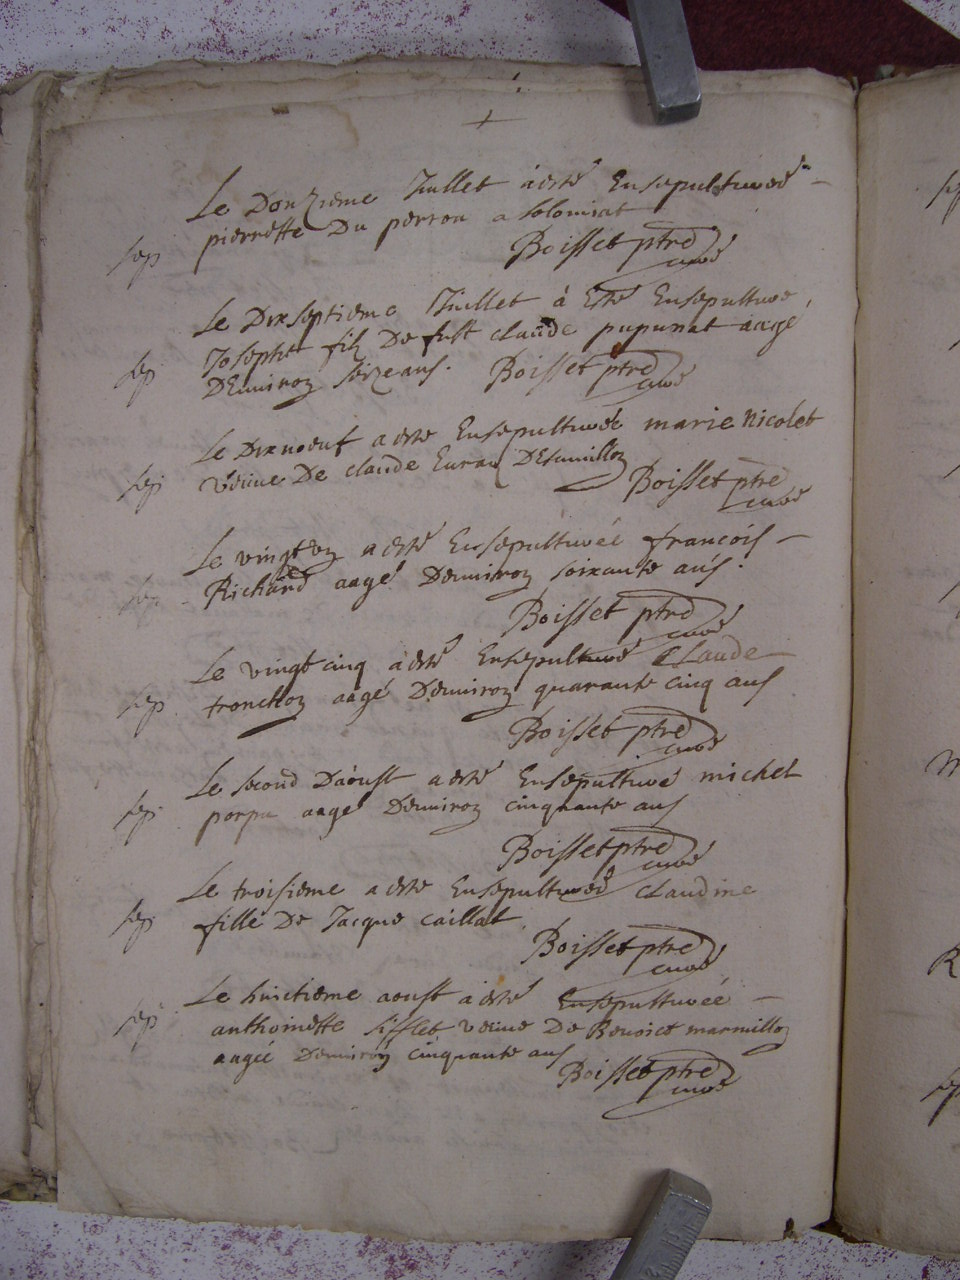 Le Douzieme Juillet a esté Ensepulturéé
sep pierrette Du perron a solomiat
Boisset ptre
curé
Le Dixseptieme Juillet à Esté Ensepulturé
sep Joseph filz De fust claude pupunat aagé
D'Enuiron seize ans. Boisset ptre
curé
Le Dixneuf a esté Ensepulturéé marie Nicolet
sep véuue De claude
Boisset ptre
curé
Le vingt vn a esté Ensepulturéé francois
sep Richard aagé Denuiron soixante ans.
Boisset ptre
curé
Le vingt cinq a esté Ensepulturé Claude
sep tronchon aagé Denuiron quarante cinq ans
Boisset ptre
curé
Le second Daoust a esté Ensepulturé michel
sep aagé Denuiron cinquante ans
Boisset ptre
curé
Le troisieme a esté Ensepulturéé claudine
sep fille De Jacque caillat.
Boisset ptre
curé
Le huictieme aoust a esté Ensepulturéé
sep anthoinette sifflet véuue De Benoict marmillon
aagéé Denuiron cinquante ans
Boisset ptre
curé